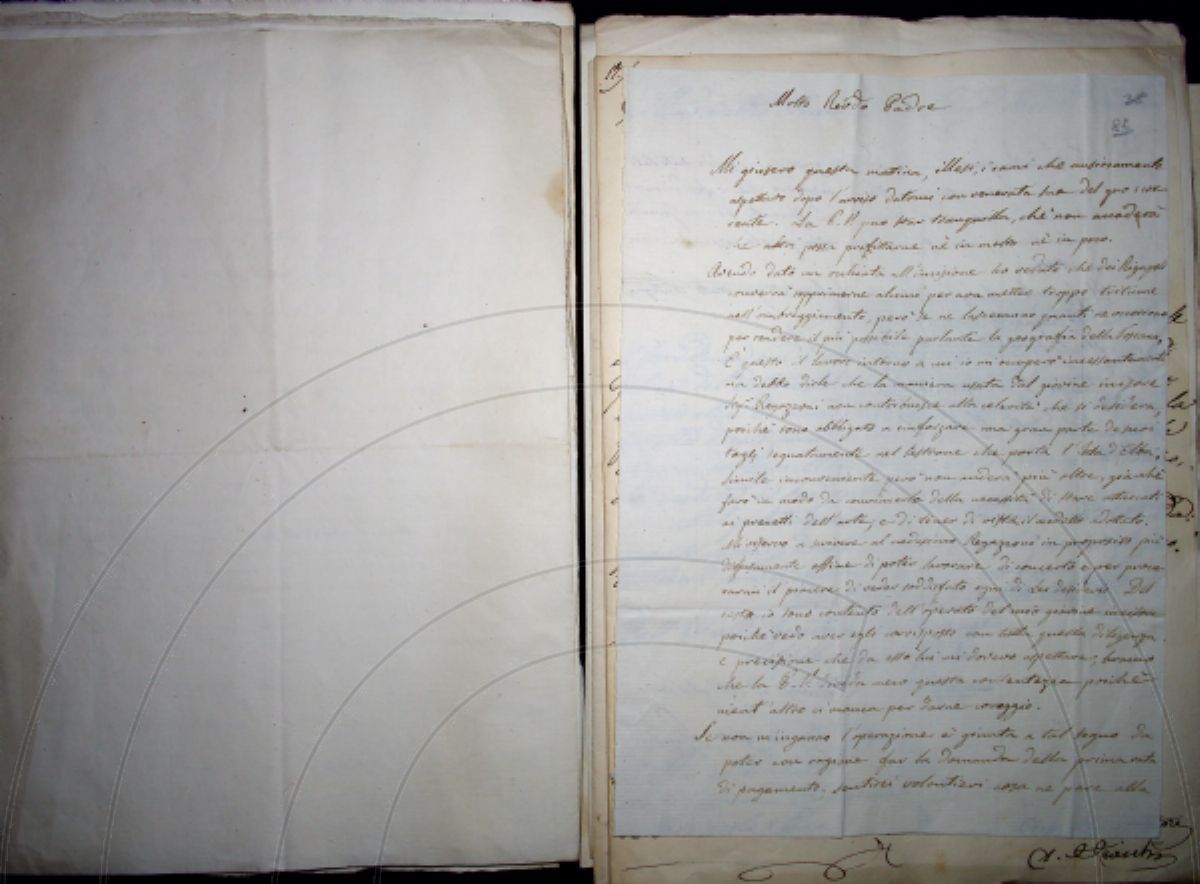 Molto Rev.do Padre
38
85
Mi giunsero questa mattina, illesi, i rami che ansiosamente
aspettavo dopo l'avviso datomi con venerata sua del 9no cor-
rente. La P.V. può star tranquilla, che non accaderà
che altri possa profittarne nè in molto nè in poco.
Avendo dato un occhiata all'incisione ho veduto che dei Rigagnoli
converrà sopprimerne alcuni per non metter troppo tortume
nell'ombreggiamento, però se ne lasceranno quanti ne occorrono
per rendere il più possibile parlante la geografia della Toscana.
È questo il lavoro intorno a cui io mi occuperò incessantemente
ma debbo dirle che la maniera usata dal giovine incisore
Sigr. Ragazzoni non contribuisce alla celerità che si desidera,
poichè sono obbligato a rinforzare una gran parte de suoi
tagli segnatamente nel lastrone che porta l'Isola d'Elba,
simile inconveniente però non anderà più oltre, giacchè
farò in modo da convincerlo della necessità di stare attaccati
ai precetti dell'arte, e di tener di vista il modello adottato.
Mi riservo a scrivere al medesimo Ragazzoni in proposito più
diffusamente affine di poter lavorare di concerto e per procu-
rarmi il piacere di veder soddisfatto ogni di Lei desiderio. Del
resto io sono contento dell'operato del mio giovine incisore
poichè vedo aver egli corrisposto con tutta questa diligenza
e precisione che da esso lui mi dovevo aspettare; bramo
che la P.V. divida meco questa contentezza poichè
nient'altro ci manca per darne coraggio.
Se non m'inganno l'operazione è giunta a tal segno da
poter con ragione far la domanda della prima rata
di pagamento; sentirei volontieri cosa ne pare alla